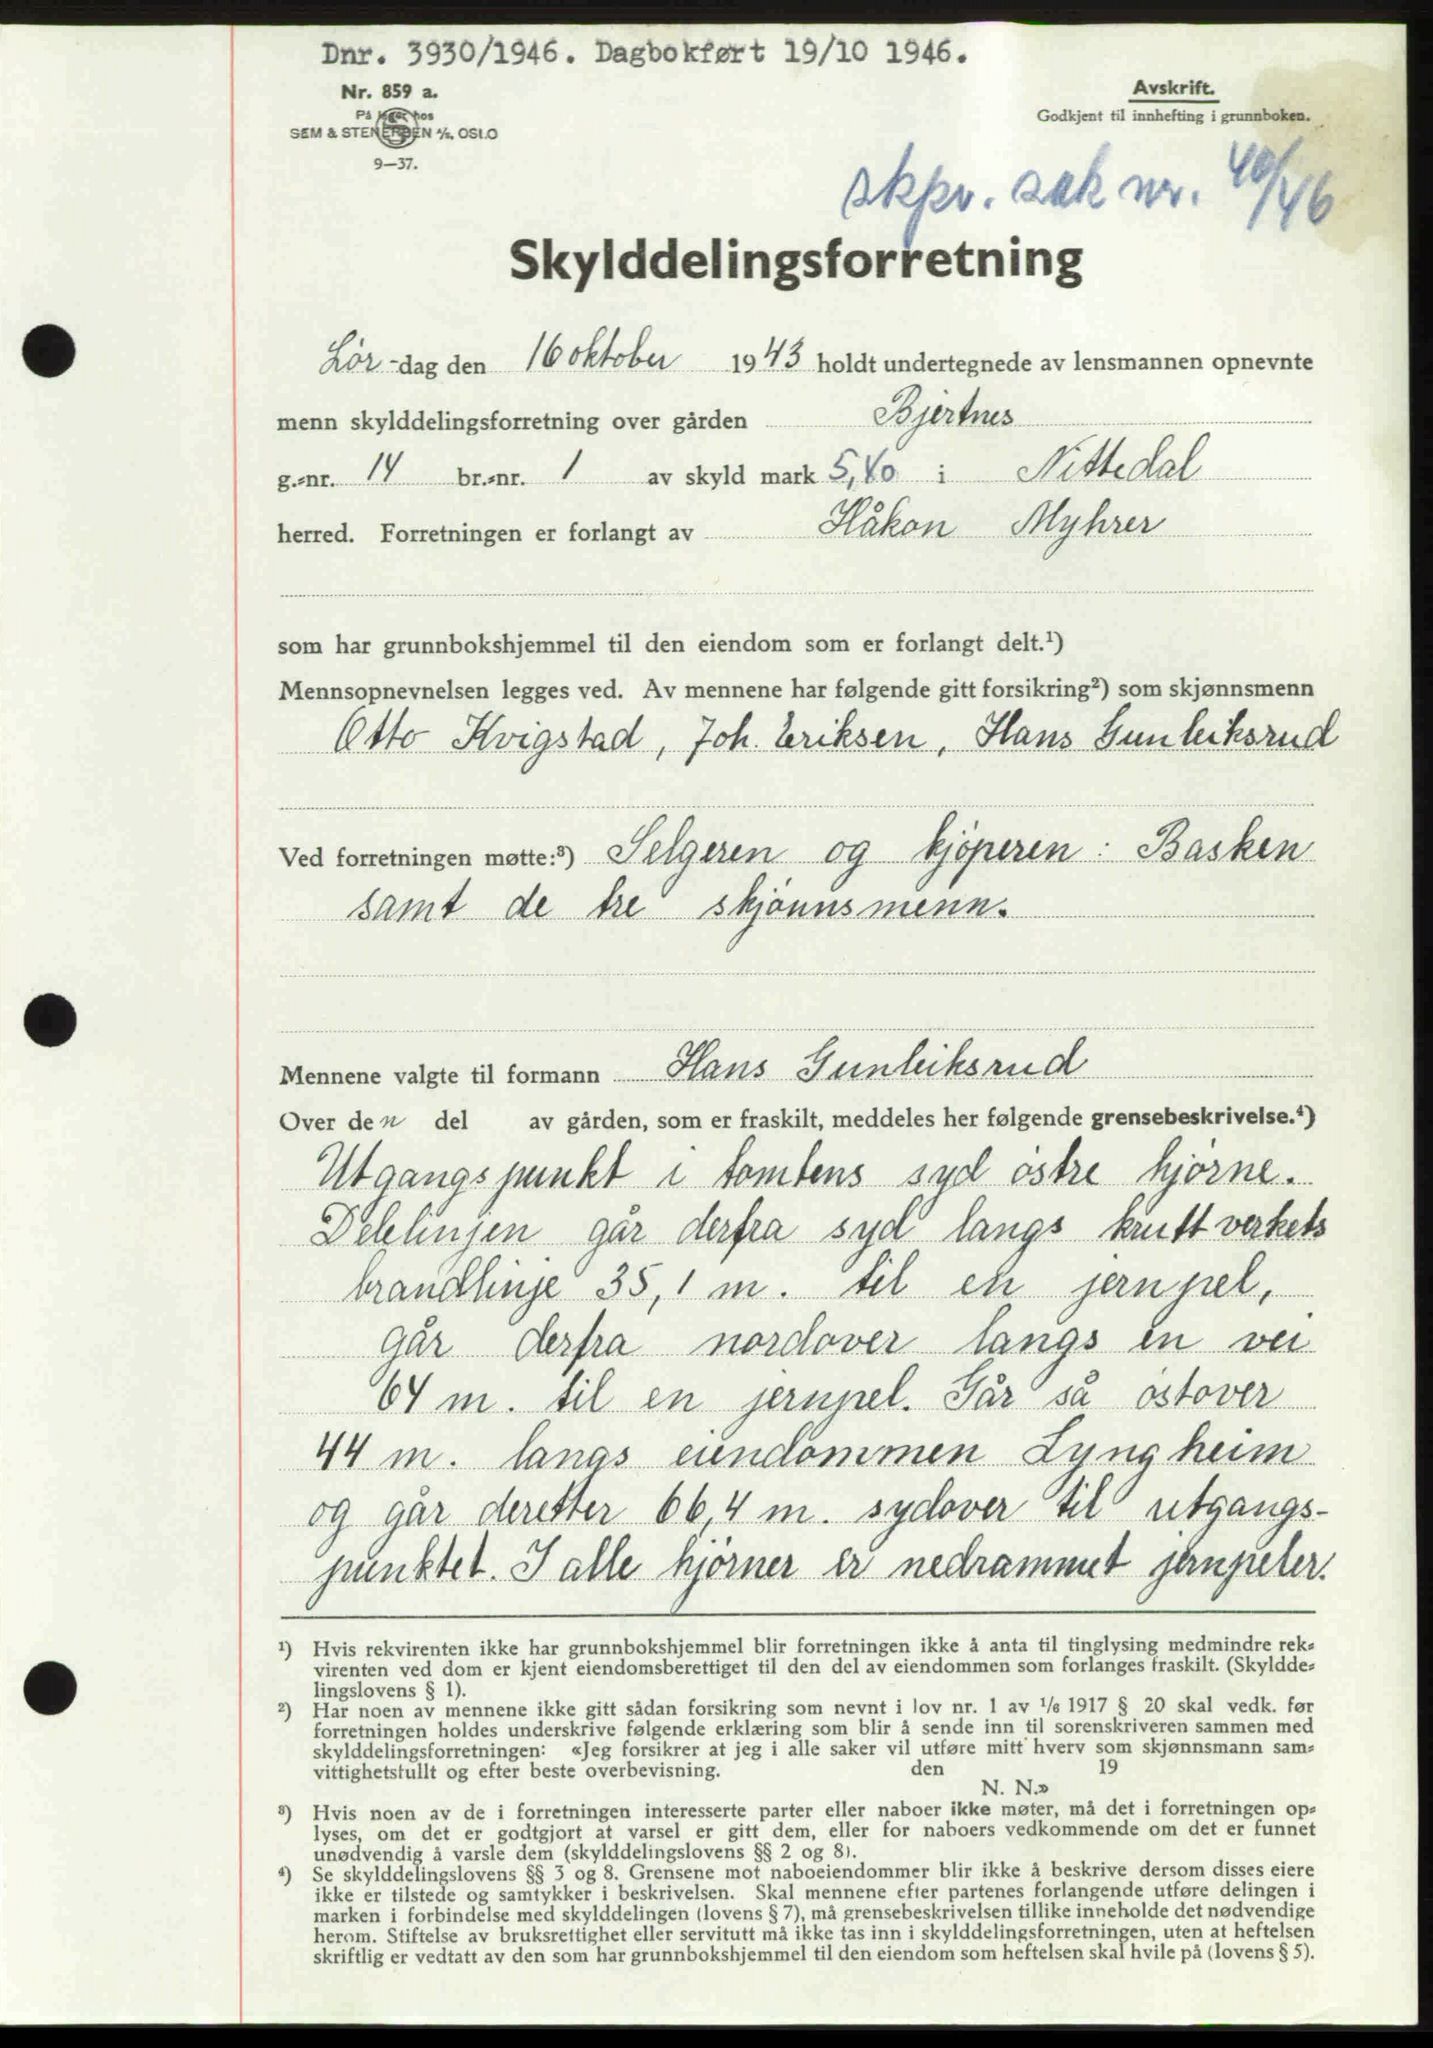 Dnr. 3930/1946. Dagbokført 19/10 1946.
Nr. 859 a.
På lager hos
SEM & STENERSEN A/S, OSLO
9—37.
Avskrift.
Godkjent til innhefting i grunnboken.
skpv. sak nr. 40/46
Skylddelingsforretning
Lør-dag den 16 oktober 1943 holdt undertegnede av lensmannen opnevnte
menn skylddelingsforretning over gården Bjertnes
g.-nr. 14 br.-nr. 1 av skyld mark 5,40 i Nittedal
herred. Forretningen er forlangt av Håkon Myhrer
som har grunnbokshjemmel til den eiendom som er forlangt delt.¹)
Mennsopnevnelsen legges ved. Av mennene har følgende gitt forsikring²) som skjønnsmenn
Otto Kvigstad, Joh. Eriksen, Hans Gunleiksrud
Ved forretningen møtte:³) Selgeren og kjøperen: Basken
samt de tre skjønnsmenn.
Mennene valgte til formann Hans Gunleiksrud
Over den del av gården, som er fraskilt, meddeles her følgende grensebeskrivelse.⁴)
Utgangspunkt i tomtens syd østre hjørne.
Delelinjen går derfra syd langs kruttverkets
brandlinje 35,1 m. til en jernpel,
går derfra nordover langs en vei
64 m. til en jernpel. Går så østover
44 m. langs eiendommen Lyngheim
og går deretter 66,4 m. sydover til utgangs-
punktet. I alle hjørner er nedrammet jernpeler.
¹) Hvis rekvirenten ikke har grunnbokshjemmel blir forretningen ikke å anta til tinglysing medmindre rek-
virenten ved dom er kjent eiendomsberettiget til den del av eiendommen som forlanges fraskilt. (Skyldde-
lingslovens § 1).
²) Har noen av mennene ikke gitt sådan forsikring som nevnt i lov nr. 1 av 1/6 1917 § 20 skal vedk. før
forretningen holdes underskrive følgende erklæring som blir å sende inn til sorenskriveren sammen med
skylddelingsforretningen: «Jeg forsikrer at jeg i alle saker vil utføre mitt hverv som skjønnsmann sam-
vittighetsfullt og efter beste overbevisning. den 19
N. N.»
³) Hvis noen av de i forretningen interesserte parter eller naboer ikke møter, må det i forretningen op-
lyses, om det er godtgjort at varsel er gitt dem, eller for naboers vedkommende om det er funnet
unødvendig å varsle dem (skylddelingslovens §§ 2 og 8).
⁴) Se skylddelingslovens §§ 3 og 8. Grensene mot naboeiendommer blir ikke å beskrive dersom disses eiere
ikke er tilstede og samtykker i beskrivelsen. Skal mennene efter partenes forlangende utføre delingen i
marken i forbindelse med skylddelingen (lovens § 7), må grensebeskrivelsen tillike inneholde det nødvendige
herom. Stiftelse av bruksrettighet eller servitutt må ikke tas inn i skylddelingsforretningen, uten at heftelsen
skriftlig er vedtatt av den som har grunnbokshjemmel til den eiendom som heftelsen skal hvile på (lovens § 5).